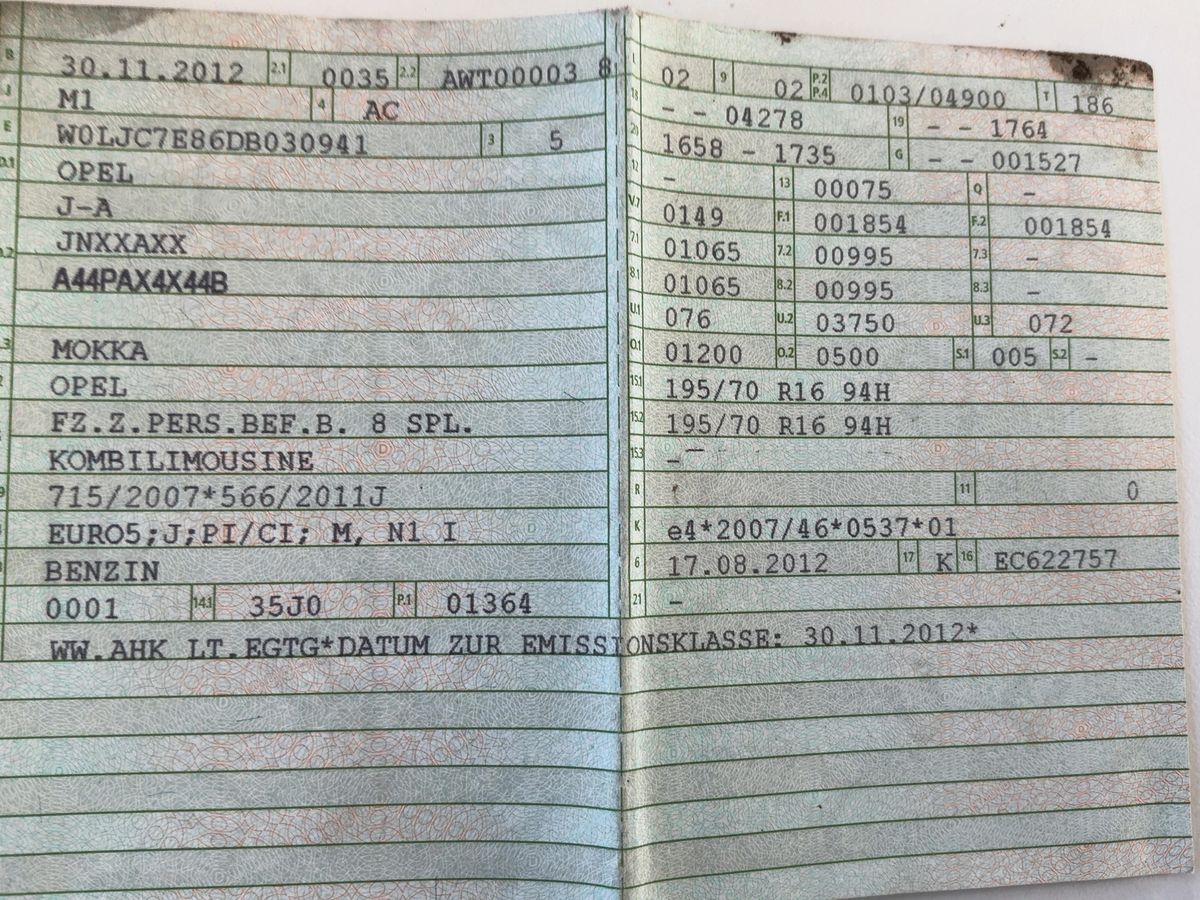 B 30.11.2012 2.1 0035 2.2 AWT00003 8
J M1 4 AC
E W0LJC7E86DB030941 3 5
D.1 OPEL
J-A
D.2 JNXXAXX
A44PAX4X44B
D.3 MOKKA
2 OPEL
FZ.Z.PERS.BEF.B. 8 SPL.
KOMBILIMOUSINE
9 715/2007*566/2011J
EURO5;J;PI/CI; M, N1 I
BENZIN
0001 14.1 35J0 P.1 01364
WW.AHK LT.EGTG*DATUM ZUR EMISSIONSKLASSE: 30.11.2012*
L 02 9 02 P.2 P.4 0103/04900 T 186
18 - - 04278 19 - - 1764
20 1658 - 1735 G - - 001527
12 - 13 00075 Q -
V.7 0149 F.1 001854 F.2 001854
7.1 01065 7.2 00995 7.3 -
8.1 01065 8.2 00995 8.3 -
U.1 076 U.2 03750 U.3 072
O.1 01200 O.2 0500 S.1 005 S.2 -
15.1 195/70 R16 94H
15.2 195/70 R16 94H
15.3 -
R 11 0
K e4*2007/46*0537*01
6 17.08.2012 17 K 16 EC622757
21 -